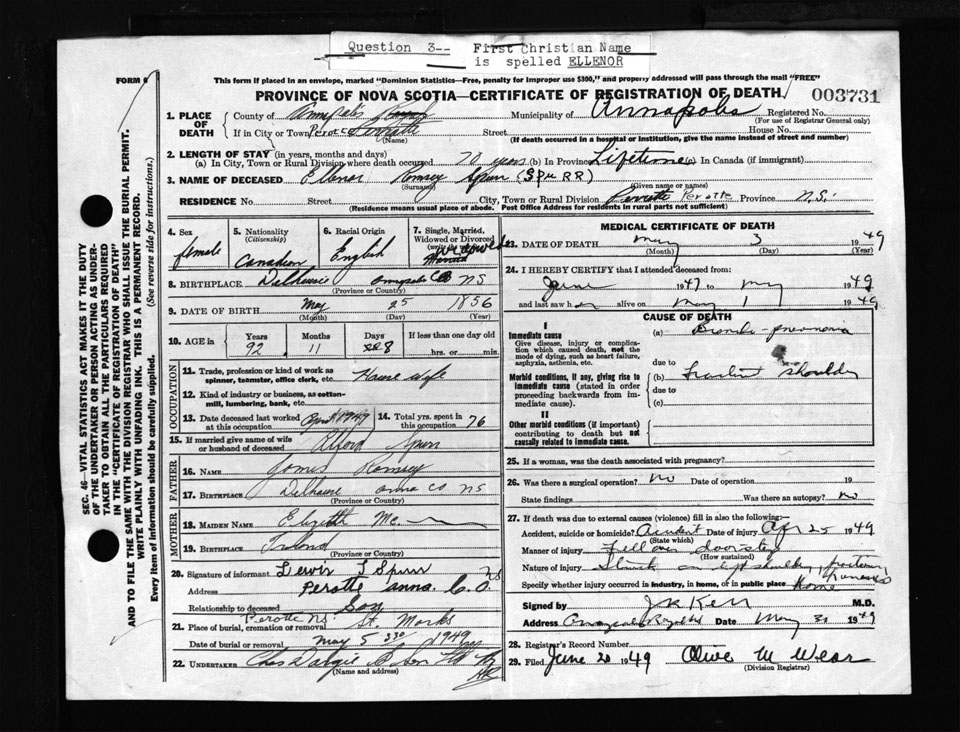 Question 3-- First Christian Name
is spelled ELLENOR
FORM 6
This form if placed in an envelope, marked "Dominion Statistics—Free, penalty for improper use $300," and properly addressed will pass through the mail "FREE"
PROVINCE OF NOVA SCOTIA—CERTIFICATE OF REGISTRATION OF DEATH.
003731
1. PLACE OF DEATH
County of Annapolis
Municipality of Annapolis Registered No.
(For use of Registrar General only)
If in City or Town Perotte
(Name)
Street House No.
(If death occurred in a hospital or institution, give the name instead of street and number)
2. LENGTH OF STAY (in years, months and days)
(a) In City, Town or Rural Division where death occurred 70 years (b) In Province Lifetime (c) In Canada (if immigrant)
3. NAME OF DECEASED Ellenor Romsey Spurr (SPURR)
(Surname) (Given name or names)
RESIDENCE No. Street City, Town or Rural Division Perotte Province N.S.
(Residence means usual place of abode. Post Office Address for residents in rural parts not sufficient)
4. Sex female
5. Nationality (Citizenship) Canadian
6. Racial Origin English
7. Single, Married, Widowed or Divorced Widowed
8. BIRTHPLACE Dalhousie Annapolis Co NS
(Province or Country)
9. DATE OF BIRTH May 25 1856
(Month) (Day) (Year)
10. AGE in Years 92 Months 11 Days 8 If less than one day old
hrs. or min.
OCCUPATION
11. Trade, profession or kind of work as spinner, teamster, office clerk, etc. House Wife
12. Kind of industry or business, as cotton-mill, lumbering, bank, etc.
13. Date deceased last worked at this occupation April 1949
14. Total yrs. spent in this occupation 76
15. If married give name of wife or husband of deceased Spurr
FATHER
16. NAME James Romsey
17. BIRTHPLACE Dalhousie Anna Co NS
(Province or Country)
MOTHER
18. MAIDEN NAME Elizabeth Mc
19. BIRTHPLACE Ireland
(Province or Country)
20. Signature of informant Lewis I Spurr
Address Perotte Anna. Co. NS
Relationship to deceased Son
21. Place of burial, cremation or removal Perotte NS. St. Marks
Date of burial or removal May 5 1949
22. UNDERTAKER Chas Dargie & Son Ltd
(Name and address)
MEDICAL CERTIFICATE OF DEATH
23. DATE OF DEATH May 3 1949
(Month) (Day) (Year)
24. I HEREBY CERTIFY that I attended deceased from
June 1947 to May 1949
and last saw her alive on May 1 1949
CAUSE OF DEATH
I
Immediate cause
Give disease, injury or complication which caused death, not the mode of dying, such as heart failure, asphyxia, asthenia, etc.
(a) Broncho-pneumonia
due to
Morbid conditions, if any, giving rise to immediate cause (stated in order proceeding backwards from immediate cause).
(b) shoulder
due to
(c)
II
Other morbid conditions (if important) contributing to death but not causally related to immediate cause.
25. If a woman, was the death associated with pregnancy?
26. Was there a surgical operation? No Date of operation 19
State findings Was there an autopsy? no
27. If death was due to external causes (violence) fill in also the following:—
Accident, suicide or homicide? Accident Date of injury Apr 25 1949
(State which)
Manner of injury Fell over doorstep
(How sustained)
Nature of injury Struck on left shoulder, fracture humerus
Specify whether injury occurred in industry, in home, or in public place Home
Signed by J R Kerr M.D.
Address Annapolis Royal NS Date May 31 1949
28. Registrar's Record No.
29. Filed June 20 1949 Olive M Wear
(Division Registrar)
SEC. 46—VITAL STATISTICS ACT MAKES IT THE DUTY
OF THE UNDERTAKER OR PERSON ACTING AS UNDER-
TAKER TO OBTAIN ALL THE PARTICULARS REQUIRED
IN THE "CERTIFICATE OF REGISTRATION OF DEATH"
AND TO FILE THE SAME WITH THE DIVISION REGISTRAR WHO SHALL ISSUE THE BURIAL PERMIT.
WRITE PLAINLY WITH UNFADING INK. THIS IS A PERMANENT RECORD.
Every item of information should be carefully supplied. (See reverse side for instructions.)